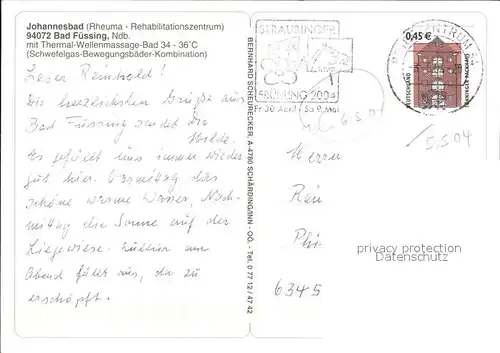 Johannesbad (Rheuma - Rehabilitationszentrum)
94072 Bad Füssing, Ndb.
mit Thermal-Wellenmassage-Bad 34 - 36°C
(Schwefelgas-Bewegungsbäder-Kombination)
Lieber Reinhold!
Die herzlichsten Grüße aus
Bad Füssing sendet Dir
Hilde.
Es gefällt uns immer wieder
gut hier. Vormittag das
schöne warme Wasser, Nach-
mittag die Sonne auf der
Liegewiese. Kultur am
Abend fällt aus, da zu
erschöpft.
BERNHARD SCHEURECKER, A-4780 SCHÄRDING/INN - OÖ. - Tel. 0 77 12 / 47 42
STRAUBINGER
FRÜHLING 2004
Fr 30. April - So 9. Mai
BRIEFZENTRUM 94
0,45 €
DEUTSCHLAND
TÖNNINGER PACKHAUS
6.5.04
5.5.04
Herrn
Rein
Phi
6345
privacy protection
Datenschutz